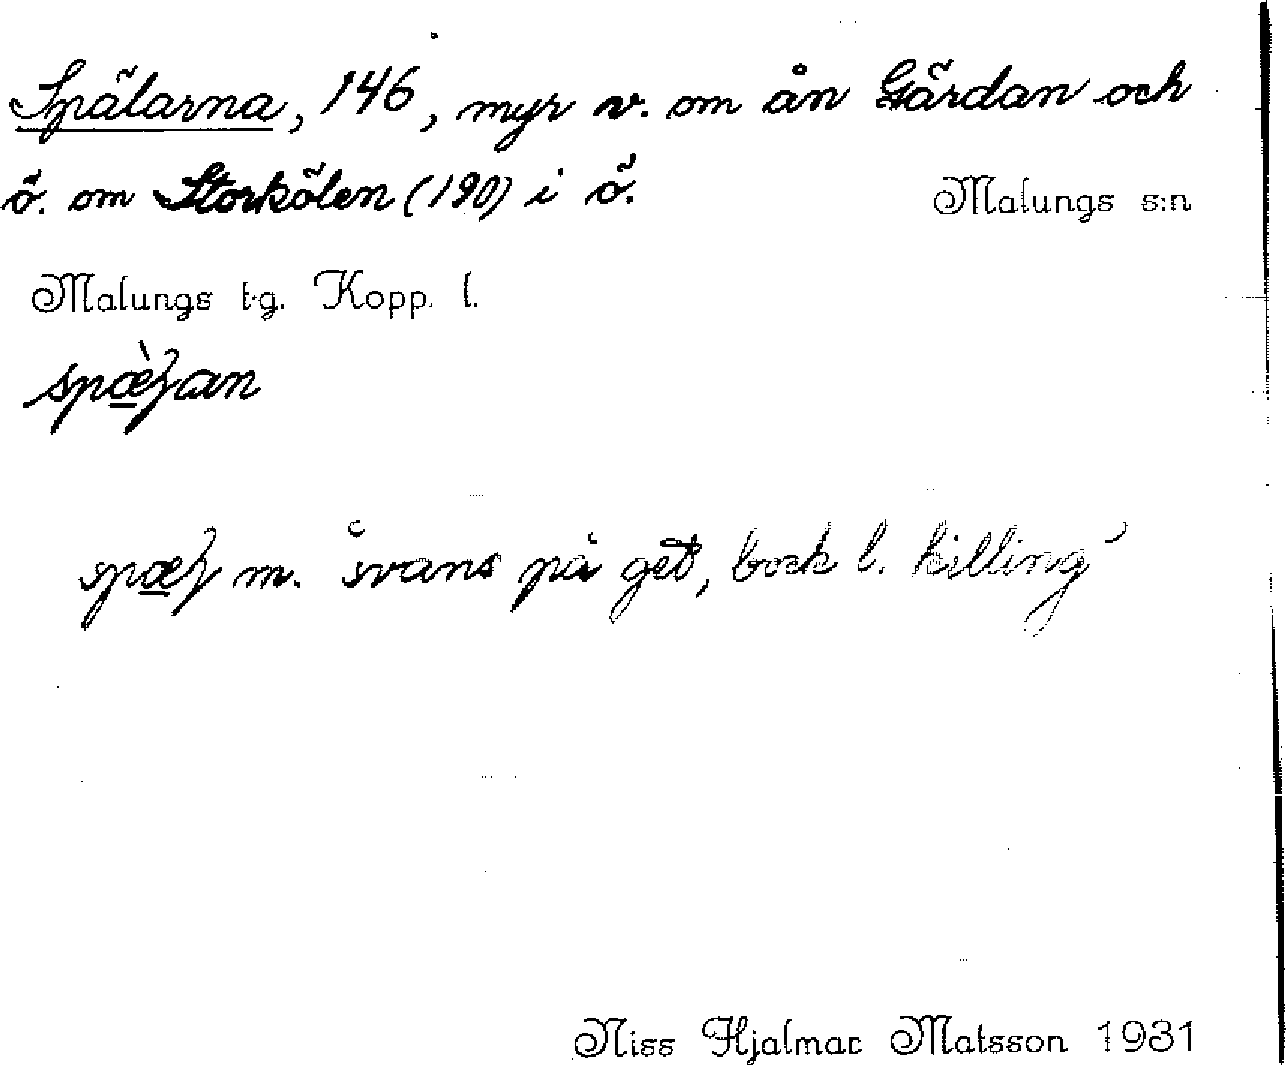 Spälarna, 146, myr v. om ån Gärdan och
ö. om Storkölen (190) i ö. Malungs s:n
Malungs tg. Kopp. l.
m. 'svans på get, bock l. killing'
Niss Hjalmar Matsson 1931